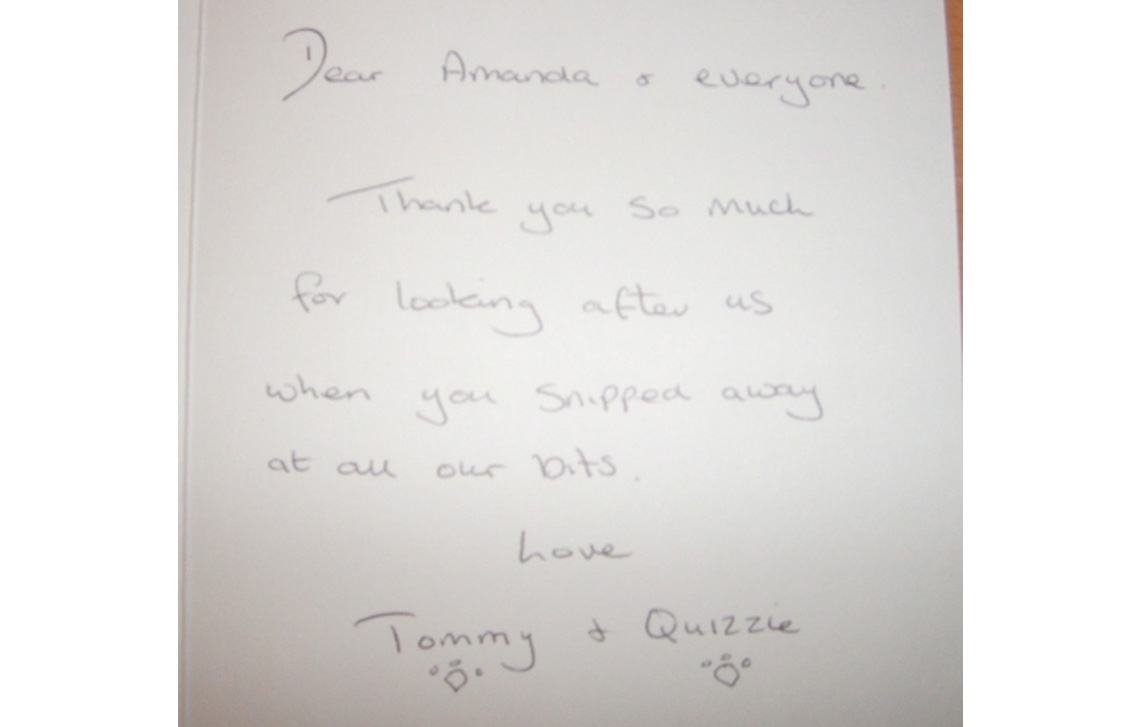 Dear Amanda & everyone.
Thank you so much
for looking after us
when you snipped away
at all our bits.
Love
Tommy & Quizzie